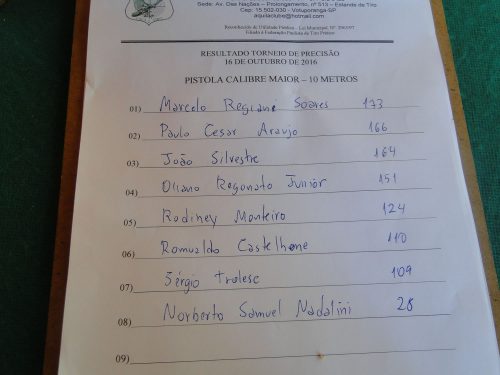 Sede: Av. Das Nações – Prolongamento, nº 513 – Estande de Tiro
Cep: 15.502-030 - Votuporanga-SP
aquilaclube@hotmail.com
Reconhecido de Utilidade Pública - Lei Municipal Nº
Filiado à Federação Paulista de Tiro Prático
RESULTADO TORNEIO DE PRECISÃO
16 DE OUTUBRO DE 2016
PISTOLA CALIBRE MAIOR – 10 METROS
01) Marcelo Regiane Soares 173
02) Paulo Cesar Araujo 166
03) João Silvestre 164
04) Oliano Regonato Junior 151
05) Rodiney Monteiro 124
06) Romualdo Castelhone 110
07) Sérgio Trolese 109
08) Norberto Samuel Madalini 28
09)